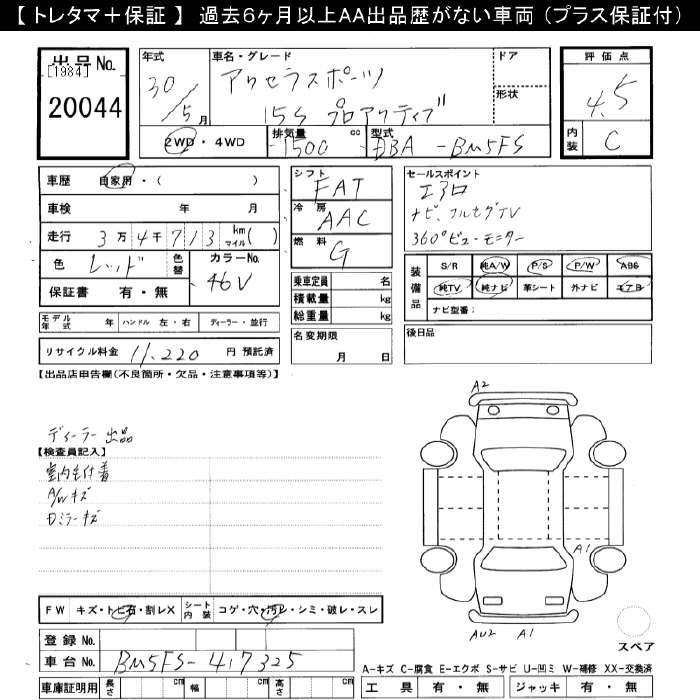 【 トレタマ＋保証 】 過去6ヶ月以上AA出品歴がない車両（プラス保証付）
出品No.
[1984]
20044
年式
30/5月
車名・グレード
アクセラスポーツ
15S プロアクティブ
ドア
形状
評価点
4.5
内装
C
2WD・4WD
排気量
1500 cc
型式
DBA-BM5FS
車歴 自家用・( )
車検 年 月
走行 3万4千713 km マイル( )
色 レッド 色替 カラーNo. 46V
保証書 有・無
シフト
FAT
冷房
AAC
燃料
G
乗車定員 名
積載量 kg
総重量 kg
セールスポイント
エアロ
ナビ、フルセグTV
360°ビュー・モニター
装備品
S/R 純A/W P/S P/W ABS
純TV 純ナビ 革シート 外ナビ エアB
ナビ型番：
モデル年式 年 ハンドル 左・右 ディーラー・並行
名変期限
月 日
後日品
リサイクル料金 11,220 円 預託済
【出品店申告欄(不良箇所・欠品・注意事項等)】
ディーラー出品
【検査員記入】
室内毛付着
A/Wキズ
Dミラーキズ
A2
A1
AU2 A1
スペア
FW キズ・トビ石・割レX シート内装 コゲ・穴・汚レ・シミ・破レ・スレ
登録No.
車台No. BM5FS-417325
車庫証明用 長さ cm 幅 cm 高さ cm
A-キズ C-腐食 E-エクボ S-サビ U-凹ミ W-補修 XX-交換済
工具 有・無 ジャッキ 有・無